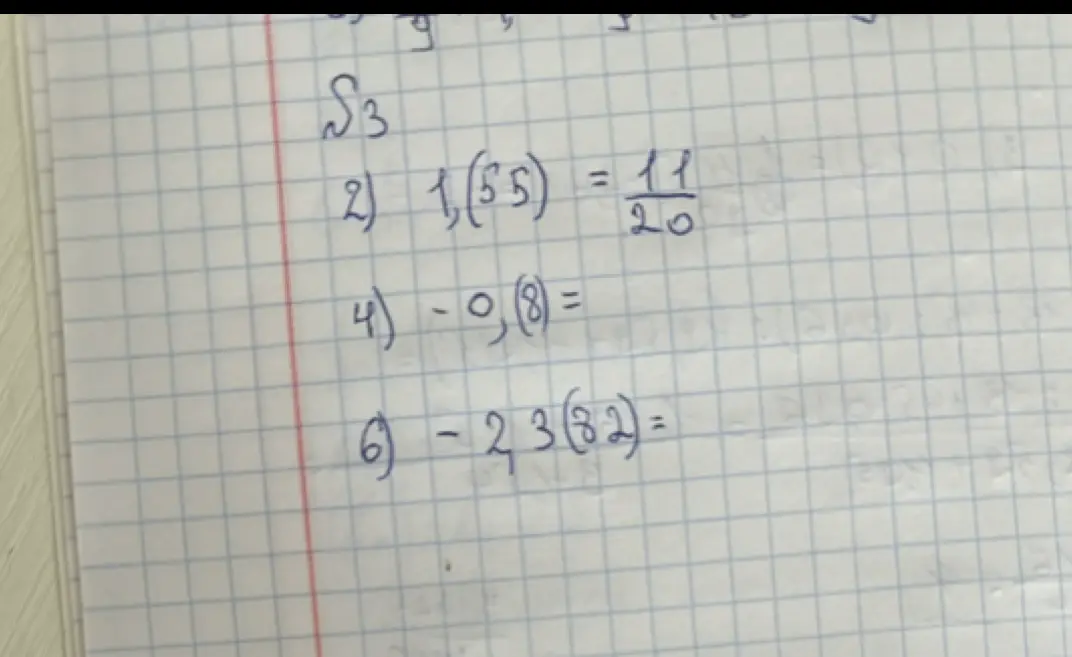 №3
2) 1,(55) = 11/20
4) - 0,(8) =
6) - 2,3(82) =